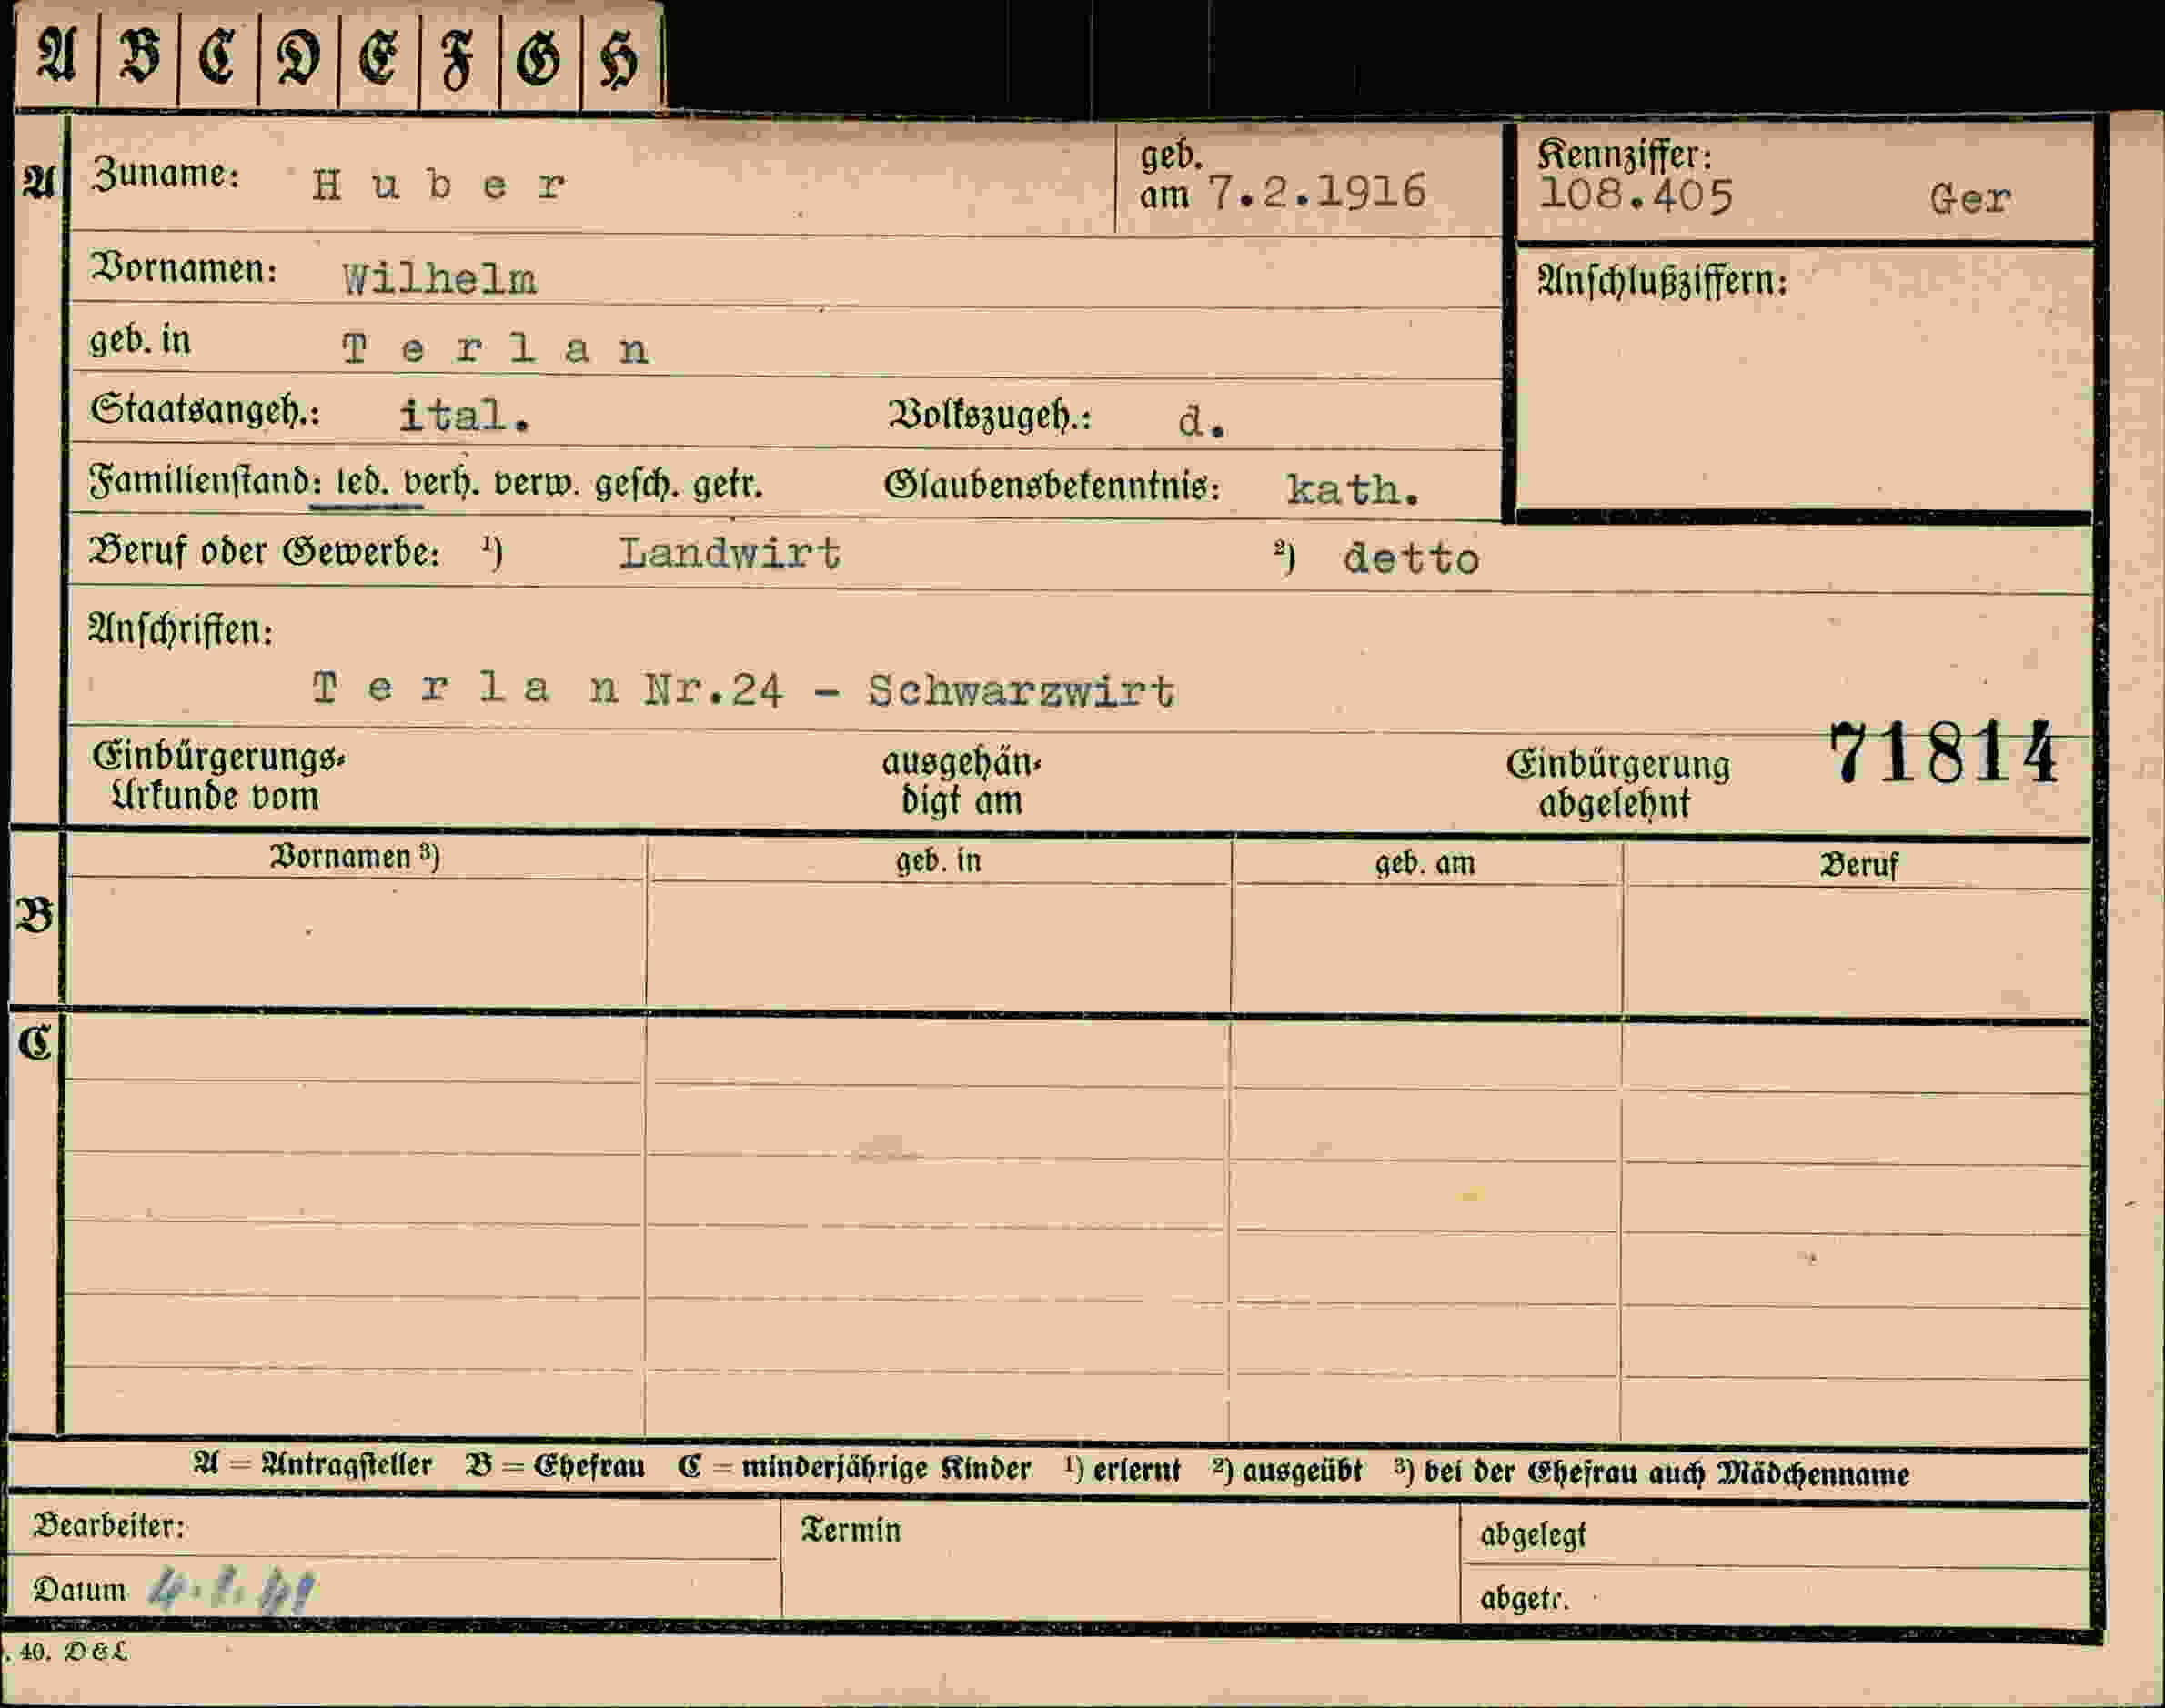 A B C D E F G H
A Zuname: H u b e r geb. am 7.2.1916 Kennziffer: 108.405 Ger
Vornamen: Wilhelm Anschlußziffern:
geb. in T e r l a n
Staatsangeh.: ital. Volkszugeh.: d.
Familienstand: led. verh. verw. gesch. getr. Glaubensbekenntnis: kath.
Beruf oder Gewerbe: ¹) Landwirt ²) detto
Anschriften:
T e r l a n Nr.24 - Schwarzwirt
Einbürgerungs- ausgehän- Einbürgerung 71814
Urkunde vom digt am abgelehnt
Vornamen ³) geb. in geb. am Beruf
B
C
A = Antragsteller B = Ehefrau C = minderjährige Kinder ¹) erlernt ²) ausgeübt ³) bei der Ehefrau auch Mädchenname
Bearbeiter: Termin abgelegt
Datum abgetr.
. 40. D & L